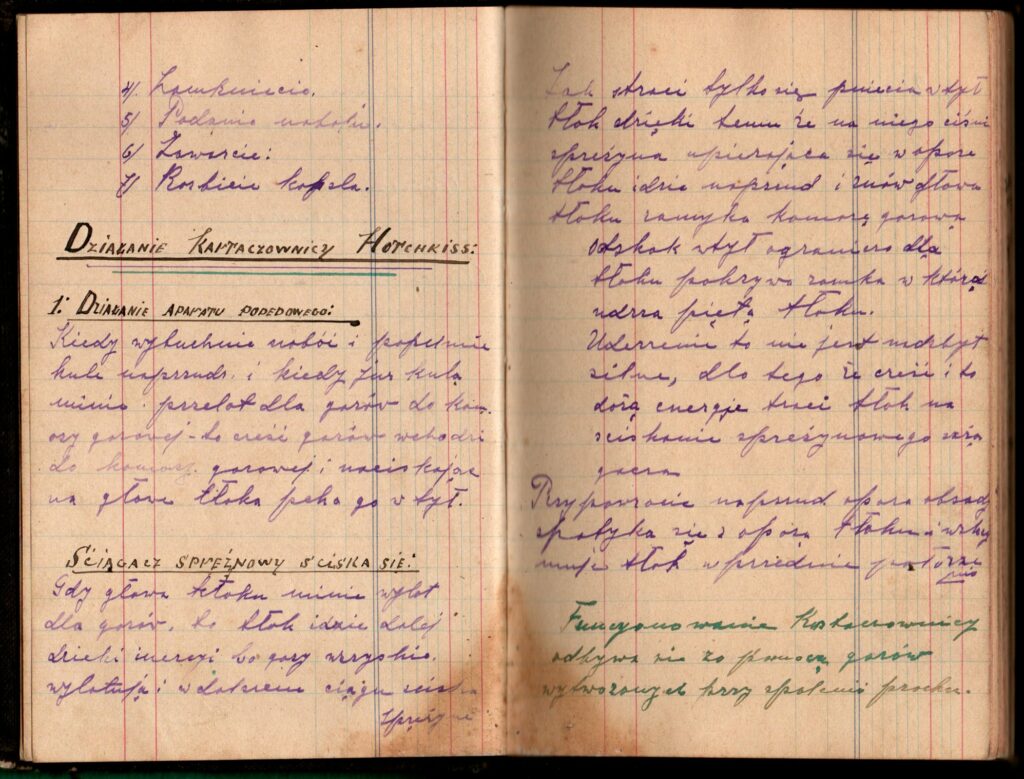 4) Zamknięcie.
5) Podanie naboju.
6) Zawarcie:
7) Rozbicie kapsla.
DZIAŁANIE KARTACZOWNICY HOTCHKISS:
1: DZIAŁANIE APARATU POPĘDOWEGO:
Kiedy wybuchnie nabói i popełnie
kule naprzudr. i kiedy już kula
minie przelot dla gazów do kom,
ory gazowej - to cześć gazów wchodzi
do komory gazowej i naciskając
na głowe tłoka pcha go w tył.
ŚCIĄGACZ SPRĘŻNOWY ŚCISKA SIĘ:
Gdy głowa tłoku minie wylot
dla gazów, to tłok idzie dalej
dzieki inercyi bo gazy wszyskie
wylatują i w dalszem ciągu ściska
spręzyne
Jak straci tylko się pchięcia w tył
tłok dzięki temu że na niego ciśni
spreżyna upierająca się w opore
tłoku idzie naprzud i znów głowa
tłoku zamyka komorę gazową
Odskok w tył ogranicza dla
tłoku pokrywa zamka w którą
udrza piętą tłoku.
Uderzenie to nie jest nadzbyt
silne, dla tego że cześć i to
dużą energje traci tłok na
ściskanie spreżynowego ścią
gacza
Przy powrocie naprzud opora obsady
spotyka się z oporą tłoku i wstrzy
muje tłok w przednie położe
nie
Funcyonowanie Kartaczownicy
odbywa sie za pomocą gazów
wytwożonych przy spaleniu prochu.